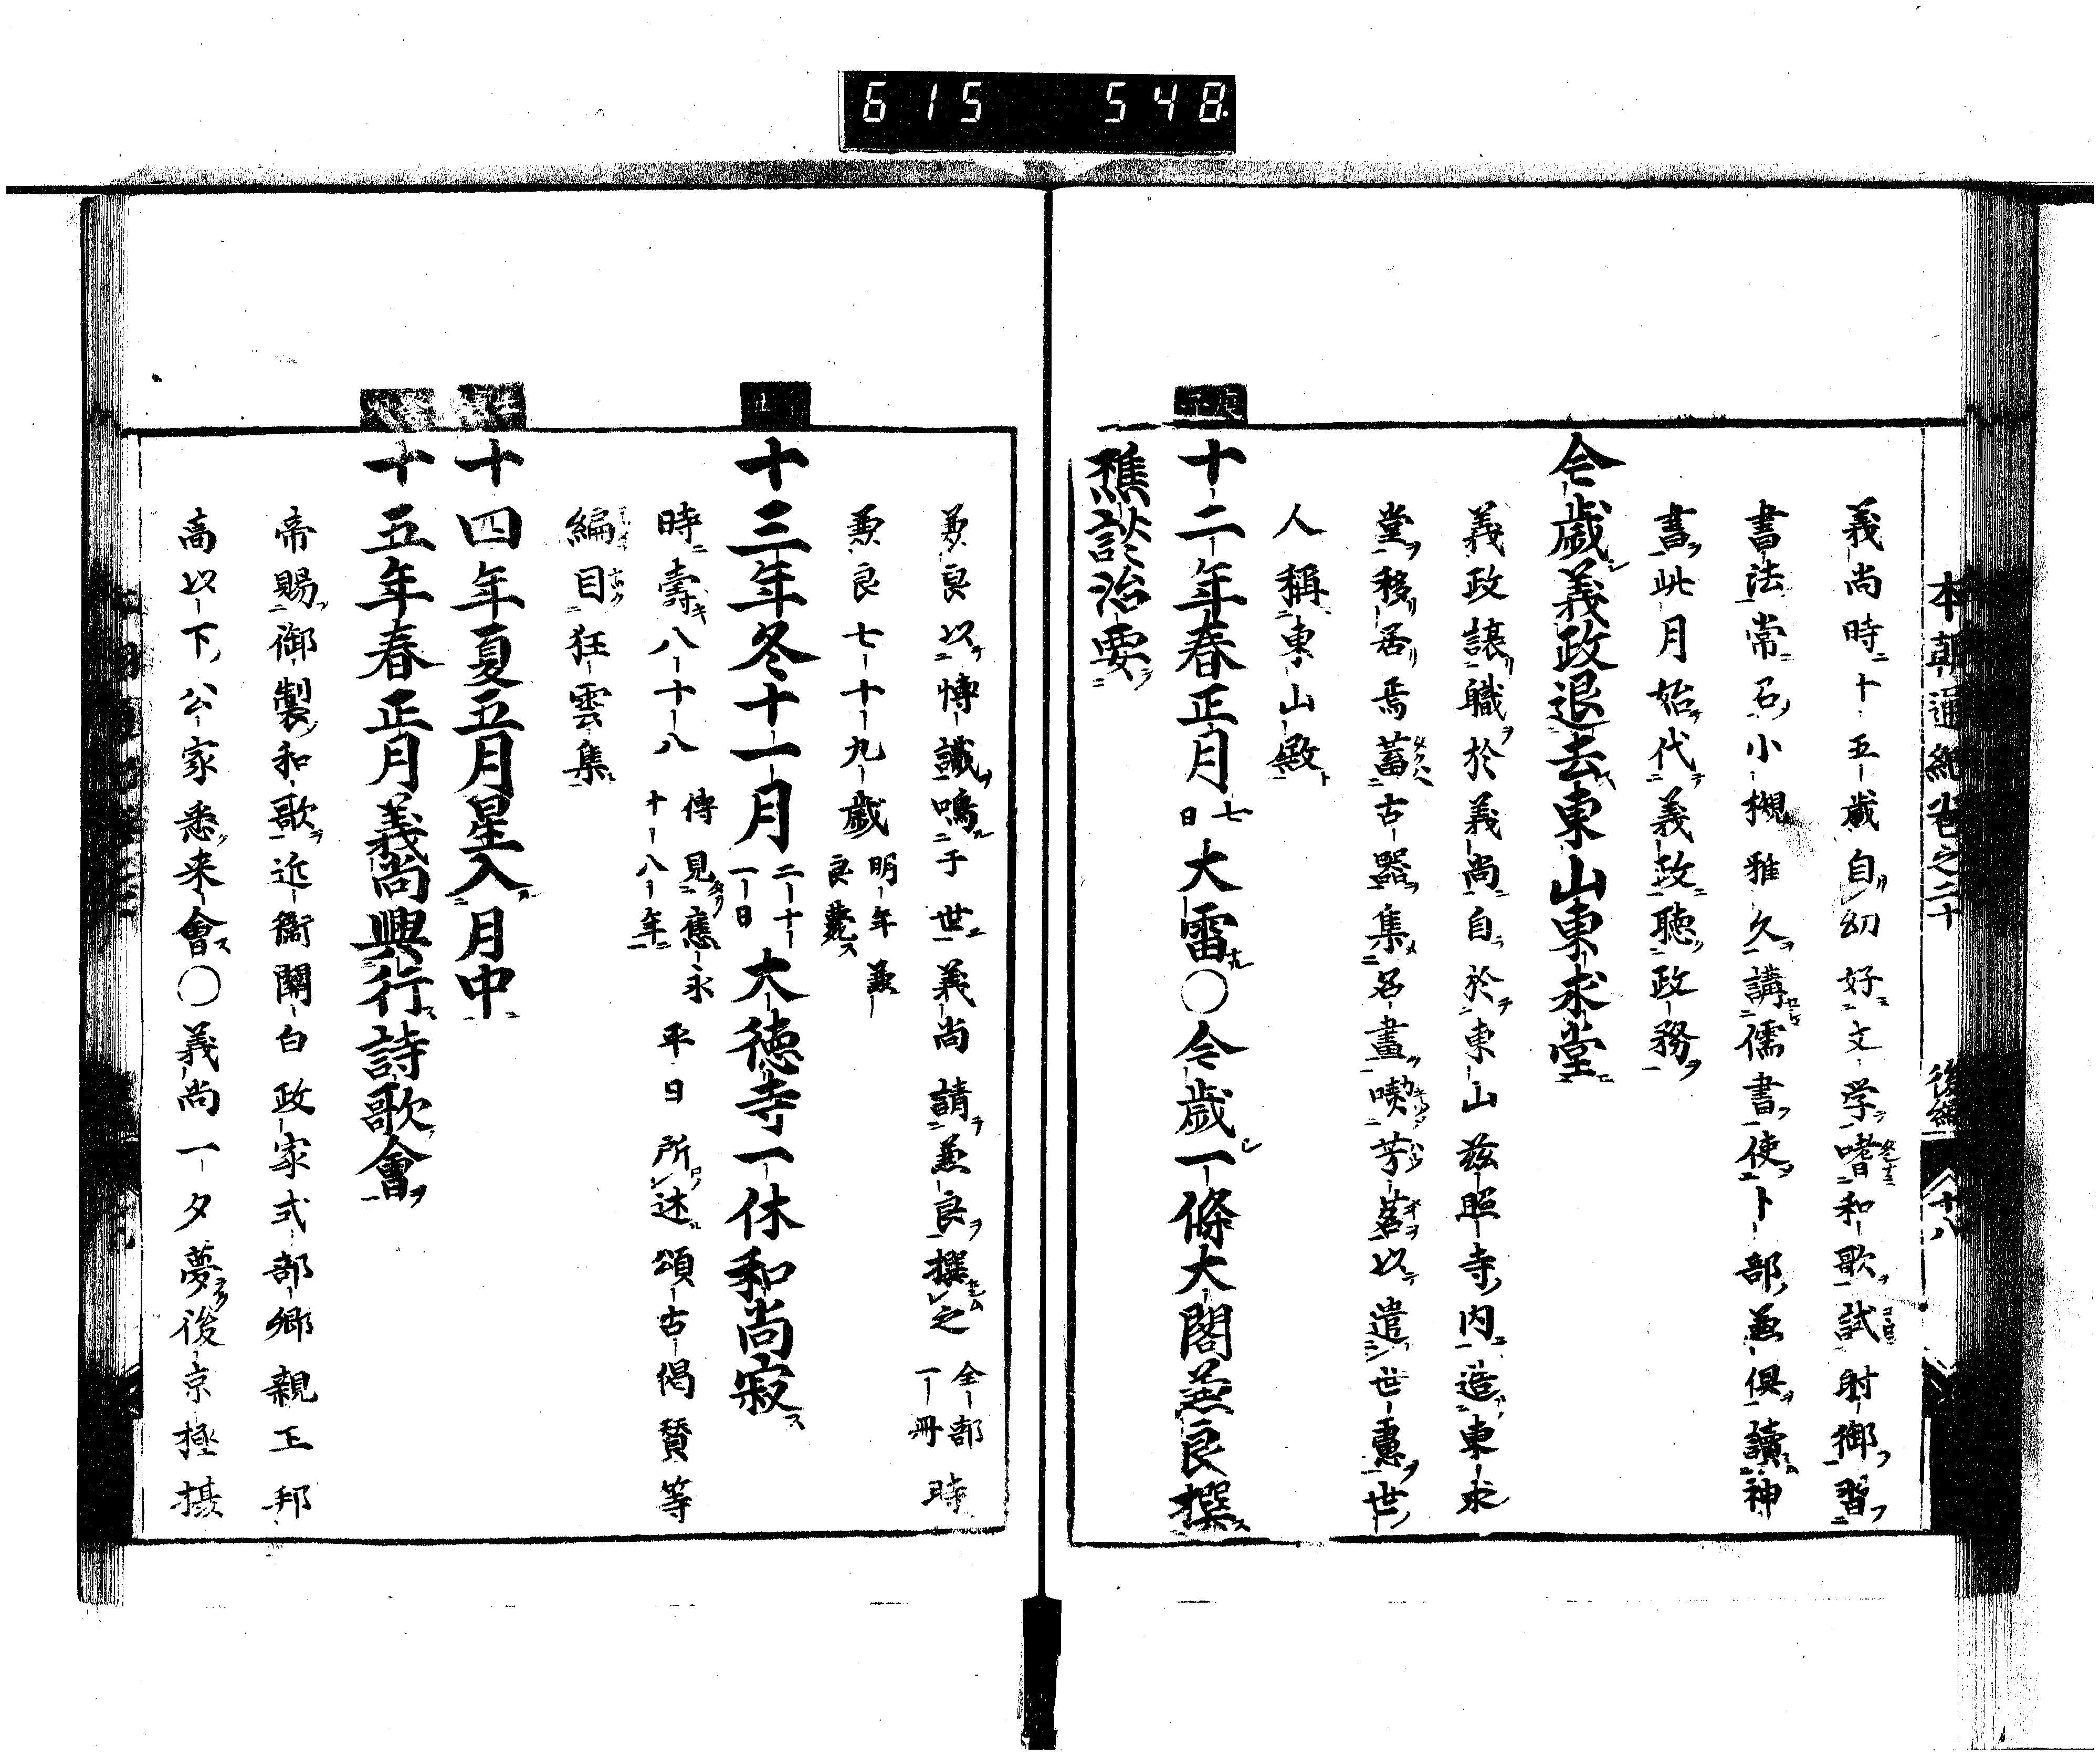 615 548
本朝通紀卷之二十 後編 十八
義尚時十五歳自幼好文学嗜和歌試射御習
書法常召小槻雅久講儒書使卜部兼倶讀神
書此月始代義政聴政務
今歳義政退去東山東求堂
義政譲職於義尚自於東山慈照寺内造東求
堂移居焉蓄古器集名畫喫芳茗以遣世慮世
人稱東山殿
庚子
十二年春正月七日大雷○今歳一條大閤兼良撰
樵談治要
兼良以博識鳴于世義尚請兼良撰之全部一冊時
兼良七十九歳明年兼良薨ス
丑
十三年冬十一月二十一日大徳寺一休和尚寂ス
時壽八十八傳見應永十八年平日所述頌古偈賛等
編目狂雲集
壬寅
十四年夏五月星入月中
癸卯
十五年春正月義尚興行詩歌會
帝賜御製和歌近衞關白政家式部卿親王邦
高以下公家悉来會○義尚一夕夢後京極摂